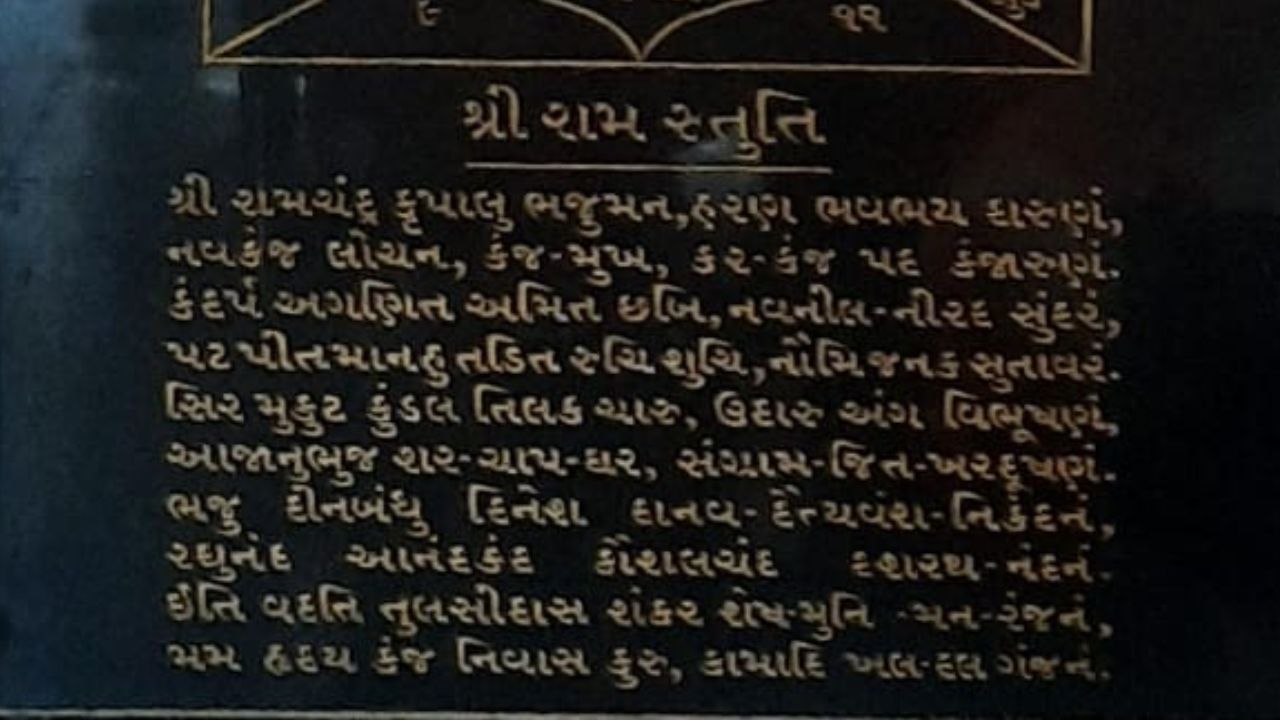 ૯ ૧૧
શ્રી રામ સ્તુતિ
શ્રી રામચંદ્ર કૃપાલુ ભજુમન,હરણ ભવભય દારુણં,
નવકંજ લોચન, કંજ-મુખ, કર-કંજ પદ કંજારુણં.
કંદર્પ અગણિત અમિત છબિ,નવનીલ-નીરદ સુંદરં,
પટ પીતમાનહુ તડિત રુચિ શુચિ,નૌમિ જનક સુતાવરં.
સિર મુકુટ કુંડલ તિલક ચારુ, ઉદારુ અંગ વિભૂષણં,
આજાનુભુજ શર-ચાપ-ધર, સંગ્રામ-જિત-ખરદૂષણં.
ભજુ દીનબંધુ દિનેશ દાનવ-દૈત્યવંશ-નિકંદનં,
રઘુનંદ આનંદકંદ કૌશલચંદ દશરથ-નંદનં.
ઈતિ વદતિ તુલસીદાસ શંકર શેષ-મુનિ -મન-રંજનં,
મમ હૃદય કંજ નિવાસ કુરુ, કામાદિ ખલ-દલ ગંજનં.